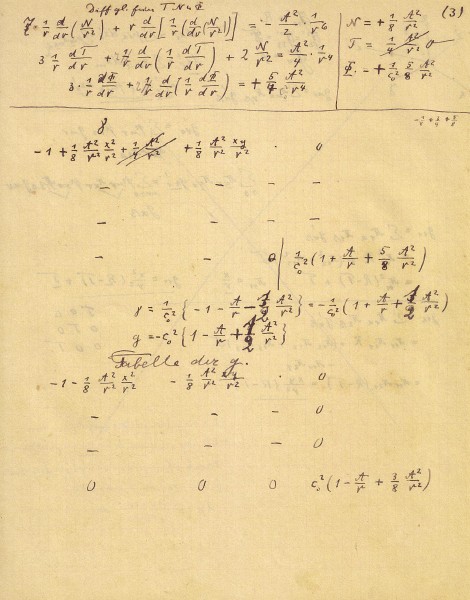 Diffgl. für T N u Φ
(3)
7·1/r d/dr (N/r²) + r d/dr [1/r (d/dr (N/r²))] = - A²/2 · 1/r⁶
N = + 1/8 A²/r²
3 1/r dT/dr + r d/dr (1/r dT/dr) + 2 N/r² = A²/4 · 1/r⁴
T = 1/4 A²/r² 0
3 · 1/r dΦ/dr + r d/dr [1/r dΦ/dr] = + 5/4 A²/r⁴
Φ = + 1/c₀² 5/8 A²/r²
γ
-1 + 1/8 A²/r² x²/r² + 1/4 A²/r² + 1/8 A²/r² xy/r² · 0
- - - -
- - - -
- - 0 1/c₀² (1 + A/r + 5/8 A²/r²)
γ = 1/c₀² { -1 - A/r - 1/2 A²/r² } = - 1/c₀² (1 + A/r + 1/2 A²/r²)
g = -c₀² { 1 - A/r + 1/2 A²/r² }
Tabelle der g.
-1 - 1/8 A²/r² x²/r² - 1/8 A²/r² xy/r² · 0
- - - 0
- - - 0
0 0 0 c₀² (1 - A/r + 3/8 A²/r²)